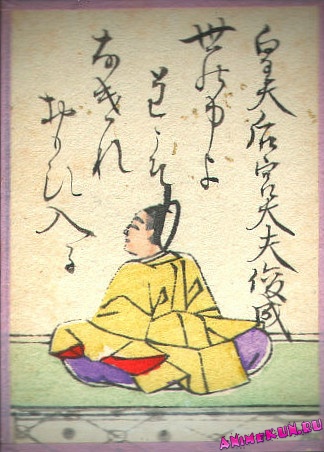 皇太后宮大夫俊成
世の中よ
道こそ
なけれ
おもひ入る
ANIMEKUN.RU